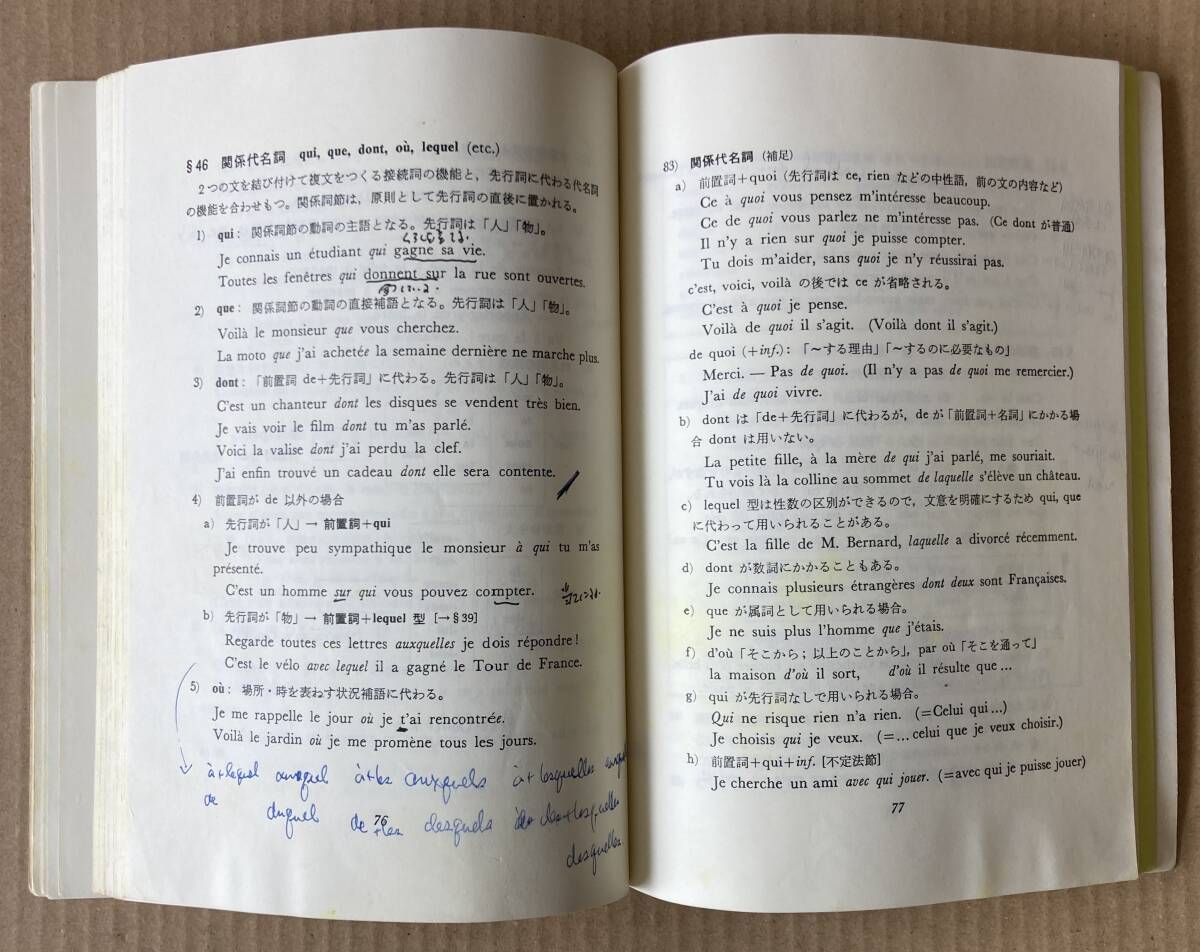 §46 関係代名詞 qui, que, dont, où, lequel (etc.)
2つの文を結び付けて複文をつくる接続詞の機能と、先行詞に代わる代名詞
の機能を合わせもつ。関係詞節は、原則として先行詞の直後に置かれる。
1) qui: 関係詞節の動詞の主語となる。先行詞は「人」「物」。
Je connais un étudiant qui gagne sa vie.
Toutes les fenêtres qui donnent sur la rue sont ouvertes.
2) que: 関係詞節の動詞の直接補語となる。先行詞は「人」「物」。
Voilà le monsieur que vous cherchez.
La moto que j'ai achetée la semaine dernière ne marche plus.
3) dont: 「前置詞 de+先行詞」に代わる。先行詞は「人」「物」。
C'est un chanteur dont les disques se vendent très bien.
Je vais voir le film dont tu m'as parlé.
Voici la valise dont j'ai perdu la clef.
J'ai enfin trouvé un cadeau dont elle sera contente.
4) 前置詞が de 以外の場合
a) 先行詞が「人」→ 前置詞+qui
Je trouve peu sympathique le monsieur à qui tu m'as
présenté.
C'est un homme sur qui vous pouvez compter.
b) 先行詞が「物」→ 前置詞+lequel 型 [→§39]
Regarde toutes ces lettres auxquelles je dois répondre!
C'est le vélo avec lequel il a gagné le Tour de France.
5) où: 場所・時を表わす状況補語に代わる。
Je me rappelle le jour où je t'ai rencontrée.
Voilà le jardin où je me promène tous les jours.
à+lequel auquel à+les auxquels à+lesquelles
de duquel de+les desquels de+lesquelles
desquelles
76
83) 関係代名詞 (補足)
a) 前置詞+quoi (先行詞は ce, rien などの中性語, 前の文の内容など)
Ce à quoi vous pensez m'intéresse beaucoup.
Ce de quoi vous parlez ne m'intéresse pas. (Ce dont が普通)
Il n'y a rien sur quoi je puisse compter.
Tu dois m'aider, sans quoi je n'y réussirai pas.
c'est, voici, voilà の後では ce が省略される。
C'est à quoi je pense.
Voilà de quoi il s'agit. (Voilà dont il s'agit.)
de quoi (+inf.): 「〜する理由」「〜するのに必要なもの」
Merci. — Pas de quoi. (Il n'y a pas de quoi me remercier.)
J'ai de quoi vivre.
b) dont は「de+先行詞」に代わるが, de が「前置詞+名詞」にかかる場
合 dont は用いない。
La petite fille, à la mère de qui j'ai parlé, me souriait.
Tu vois là la colline au sommet de laquelle s'élève un château.
c) lequel 型は性数の区別ができるので, 文意を明確にするため qui, que
に代わって用いられることがある。
C'est la fille de M. Bernard, laquelle a divorcé récemment.
d) dont が数詞にかかることもある。
Je connais plusieurs étrangères dont deux sont Françaises.
e) que が属詞として用いられる場合。
Je ne suis plus l'homme que j'étais.
f) d'où「そこから; 以上のことから」, par où「そこを通って」
la maison d'où il sort, d'où il résulte que...
g) qui が先行詞なしで用いられる場合。
Qui ne risque rien n'a rien. (=Celui qui...)
Je choisis qui je veux. (=...celui que je veux choisir.)
h) 前置詞+qui+inf. [不定法節]
Je cherche un ami avec qui jouer. (=avec qui je puisse jouer)
77